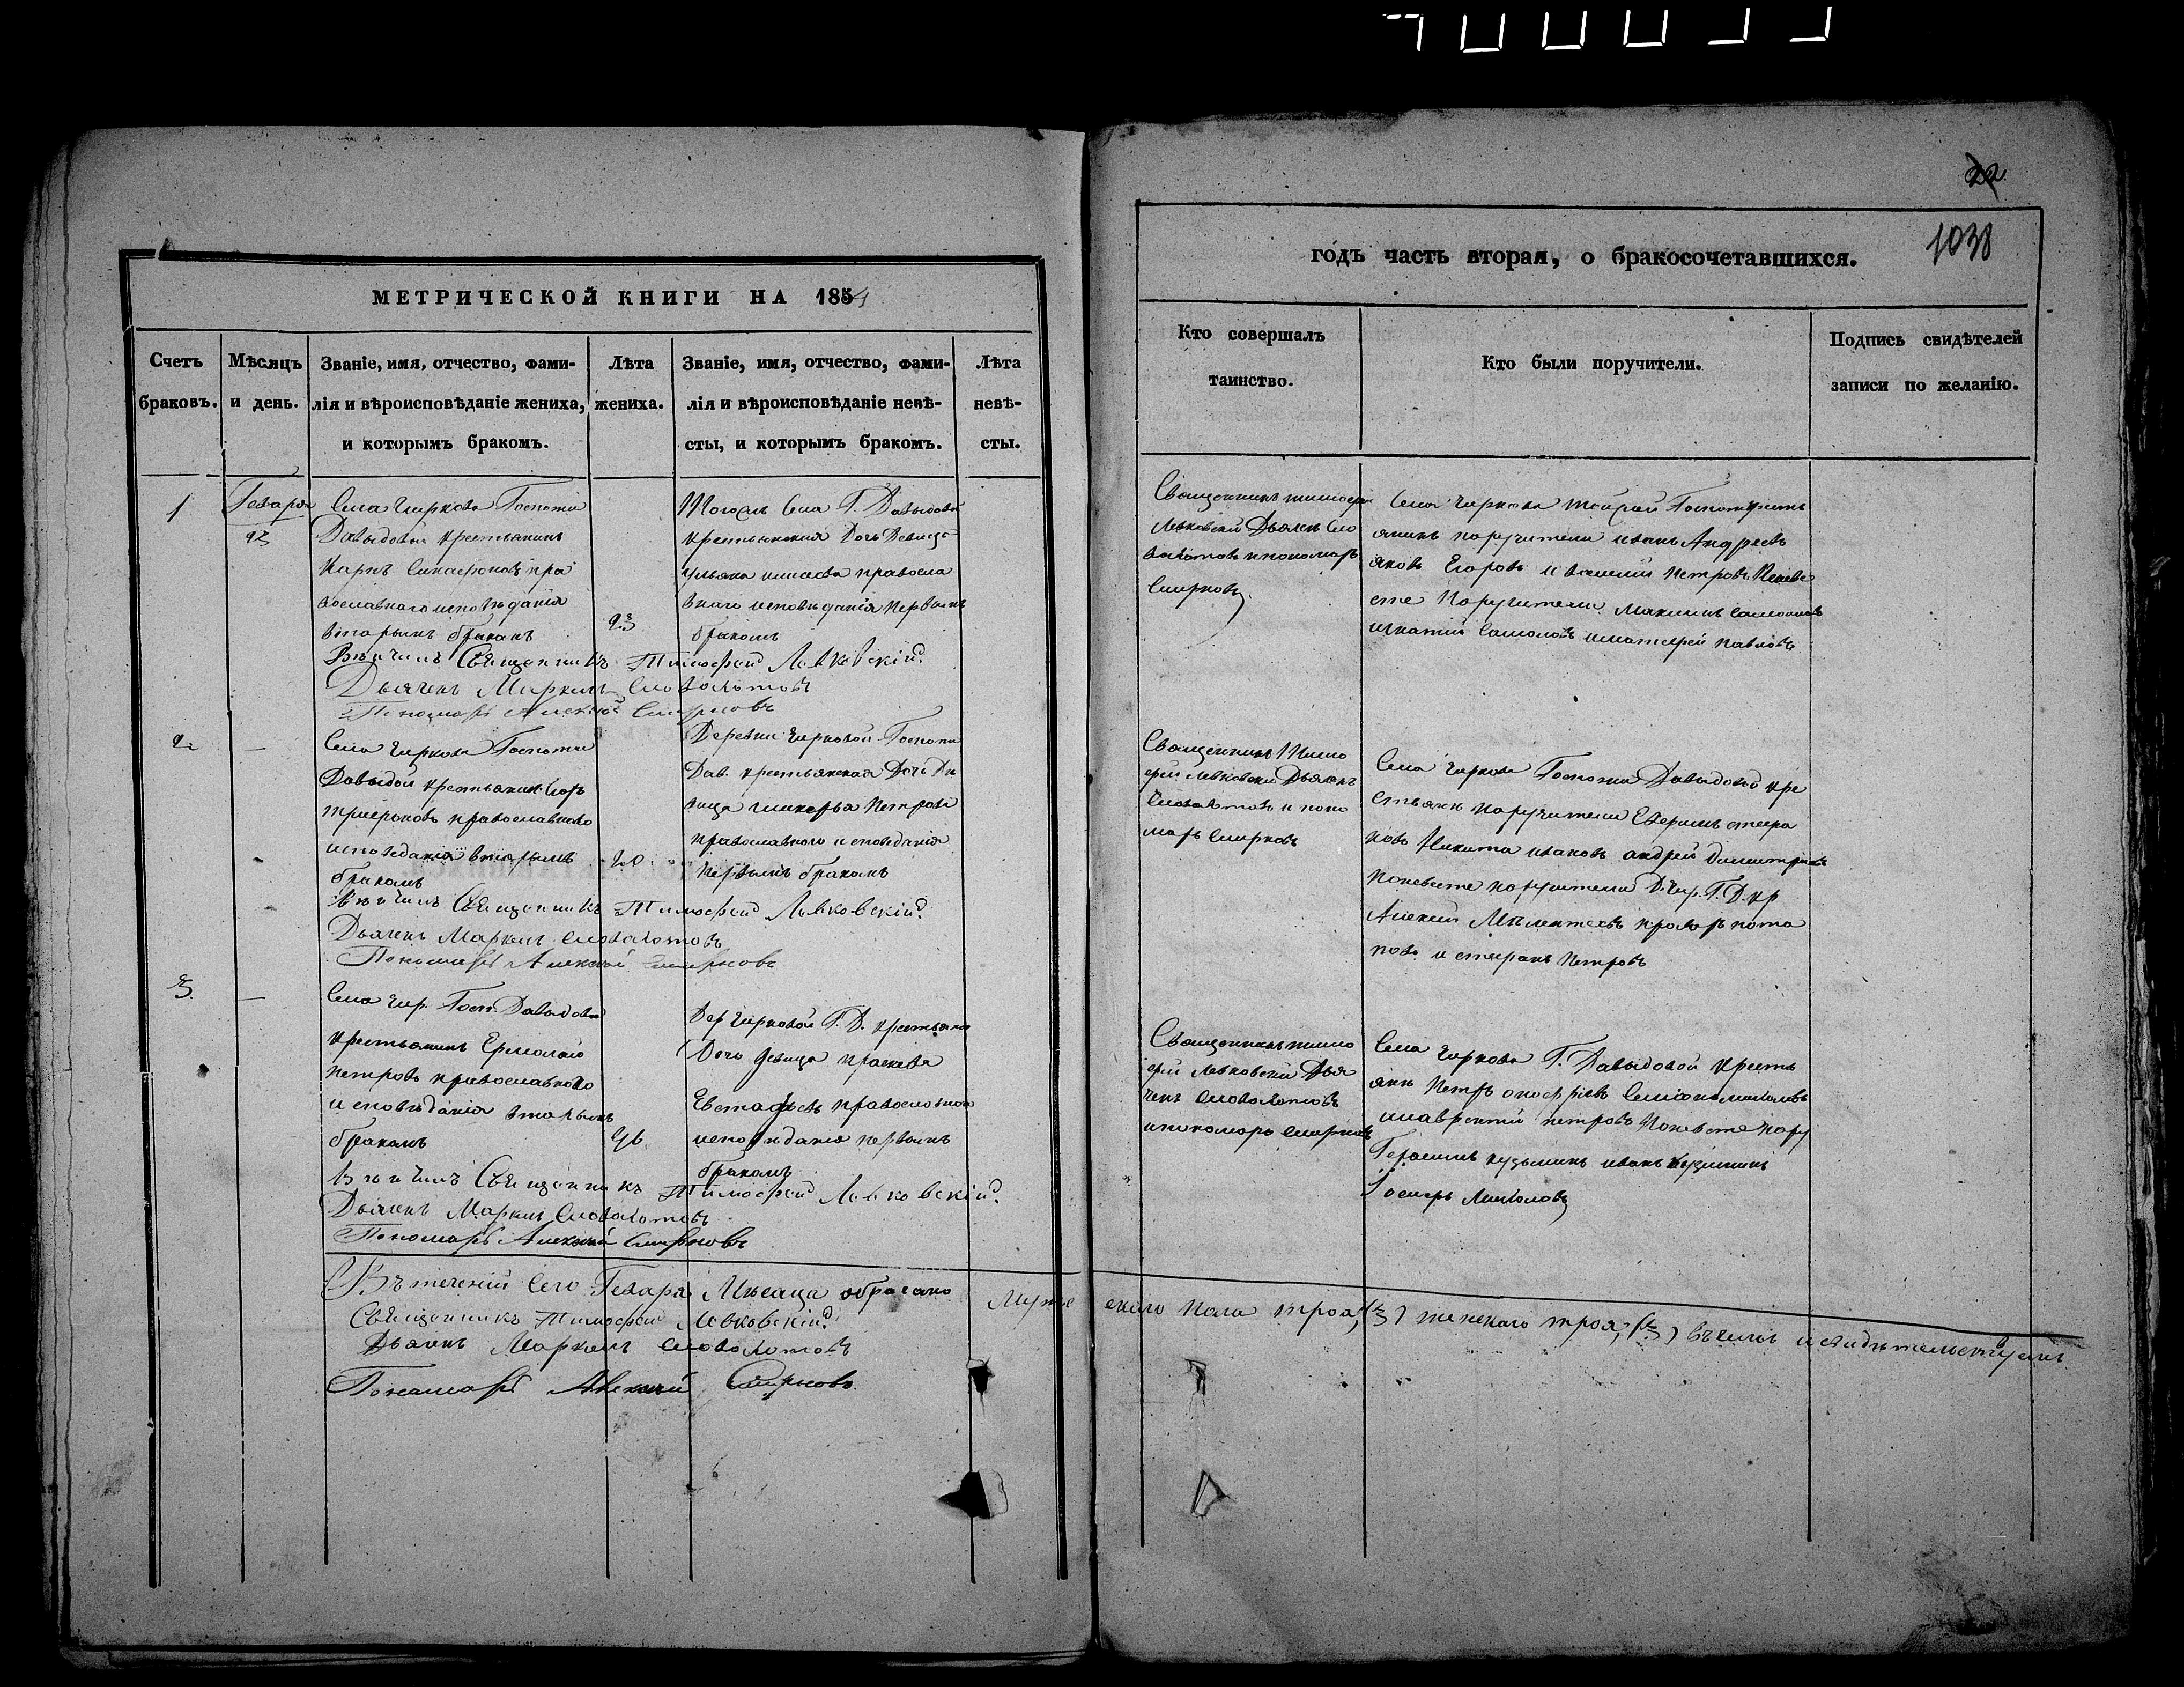 22
1038
МЕТРИЧЕСКОЙ КНИГИ НА 1854
годъ часть вторая, о бракосочетавшихся.
Счетъ браковъ.
Мѣсяцъ и день.
Званіе, имя, отчество, фами-
лія и вѣроисповѣданіе жениха,
и которымъ бракомъ.
Лѣта
жениха.
Званіе, имя, отчество, фами-
лія и вѣроисповѣданіе невѣ-
сты, и которымъ бракомъ.
Лѣта
невѣ-
сты.
Кто совершалъ
таинство.
Кто были поручители.
Подпись свидѣтелей
записи по желанію.
1
Генваря
23
Села Чиркова Госпожи
Давыдовой крестьянинъ
Карпъ пра
вославнаго исповѣданія
вторымъ бракомъ
23
Тогожъ Села Г. Давыдовой
крестьянская Дочь Девица
Ульяна правосла
внаго исповѣданія первымъ
бракомъ
Священникъ Тимофей
Левковскій Дьячекъ Сло
вохотовъ и пономарь
Смирновъ
Села Чиркова тойжъ Госпожи крестъ
янинъ поручители иванъ Андреевъ
яковъ Егоровъ и василій Петровъ. Поневе
сте Поручители Максимъ
игнатій и матвѣй павловъ
Вѣнчалъ Священникъ Тимофей Левковскій
Дьячекъ Маркелъ Словохотовъ
Пономарь Алексѣй Смирновъ
2
—
Села Чиркова Госпожи
Давыдой крестьянинъ
православнаго
исповеданія вторымъ
бракомъ
Деревни Чирковой Госпожи
Дав. крестьянская Дочь Дѣ
вица гликерья Петрова
православнаго исповѣданія
первымъ бракомъ
Священникъ Тимо
фей Левковскій Дьячекъ
Словохотовъ и поно
марь Смирновъ
Села Чиркова Госпожи Давыдовой кре
стьяне поручители Ефремъ степа
новъ Никита ивановъ андрей Димитриевъ
Поневесте поручители Д. Чир. Г. Д. кр
Алексей прохоръ пота
повъ и степанъ Петровъ
Вѣнчалъ Священникъ Тимофей Левковскій
Дьячекъ Маркелъ Словохотовъ
Пономарь Алексѣй Смирновъ
3.
—
Села Чир. Госп. Давыдовой
крестьянинъ Ермолай
петровъ православнаго
исповѣданія вторымъ
бракомъ
Дер Чирковой Г. Д. крестьянск
Дочь девица праскева
Евстафьева православнаго
исповѣданія первымъ
бракомъ
Священникъ тимо
фей Левковскій Дья
чекъ Словохотовъ
и пономарь Смирновъ
Села Чиркова Г. Давыдовой кресть
яне Петръ онофріевъ Семіонъ
илаврентій петровъ Поневесте пору
Герасимъ кузьминъ иванъ кузьминъ
Вѣнчалъ Священникъ Тимофей Левковскій
Дьячекъ Маркелъ Словохотовъ
Пономарь Алексѣй Смирновъ
Въ теченіи Сего Генваря Мѣсяца обрачано Муже скаго пола троя, (3) женскаго троя, (3) въ чемъ и свидѣтельствуемъ
Священникъ Тимофей Левковскій
Дьячекъ Маркелъ Словохотовъ
Пономарь Алексѣй Смирновъ